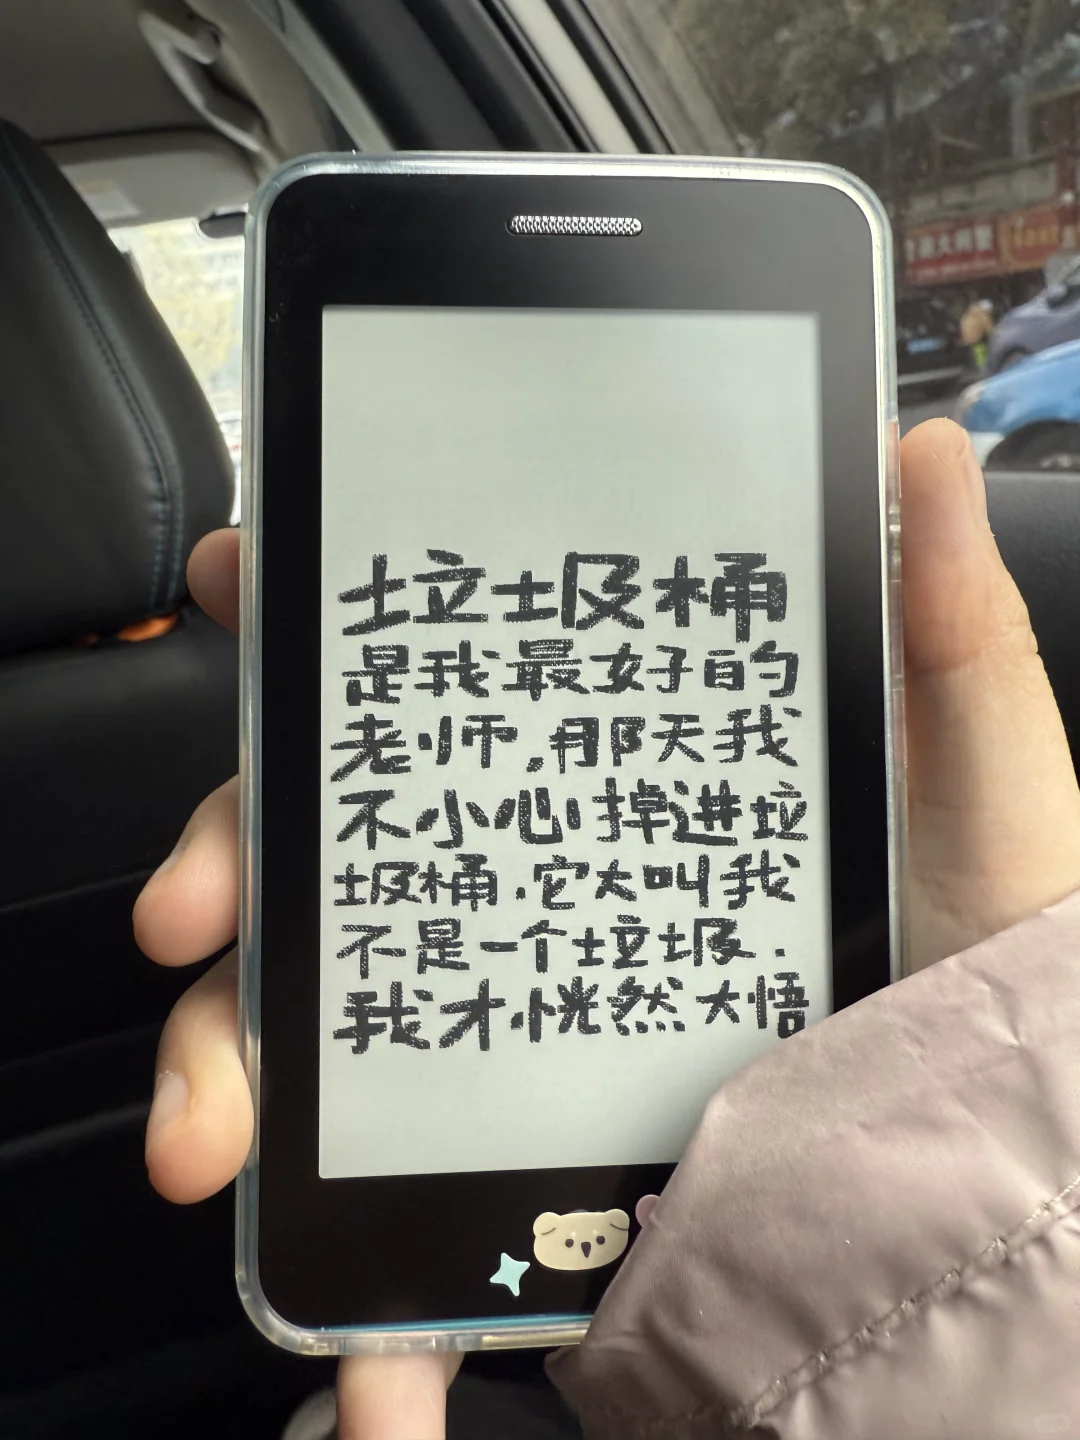 垃圾桶
是我最好的
老师,那天我
不小心掉进垃
圾桶.它大叫我
不是一个垃圾.
我才恍然大悟